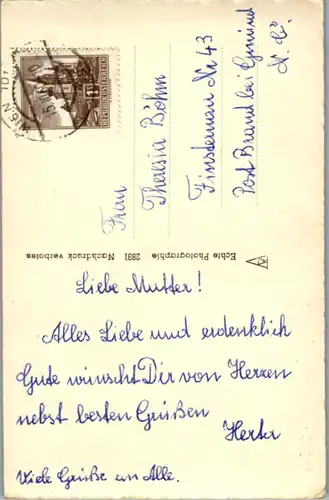 Liebe Mutter!
Alles Liebe und erdenklich
Gute wünscht Dir von Herzen
nebst besten Grüßen
Herta
Viele Grüße an Alle.
Frau
Theresia Böhm
Finsternau Nr 43
Post Brand bei Gmünd
N. Ö.
Echte Photographie 2891 Nachdruck verboten
REPUBLIK ÖSTERREICH